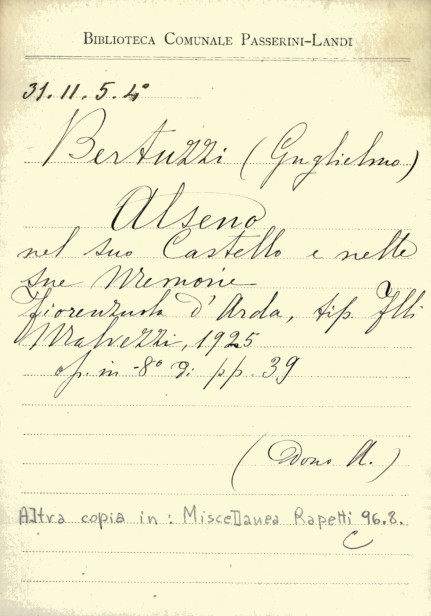 BIBLIOTECA COMUNALE PASSERINI-LANDI
31.11.5.4°
Bertuzzi (Guglielmo)
Alseno
nel suo Castello e nelle
sue Memorie
Fiorenzuola d'Arda, tip. Flli
Malvezzi, 1925
op. in -8° di pp. 39
(Dono A.)
Altra copia in: Miscellanea Rapetti 96.8.
C